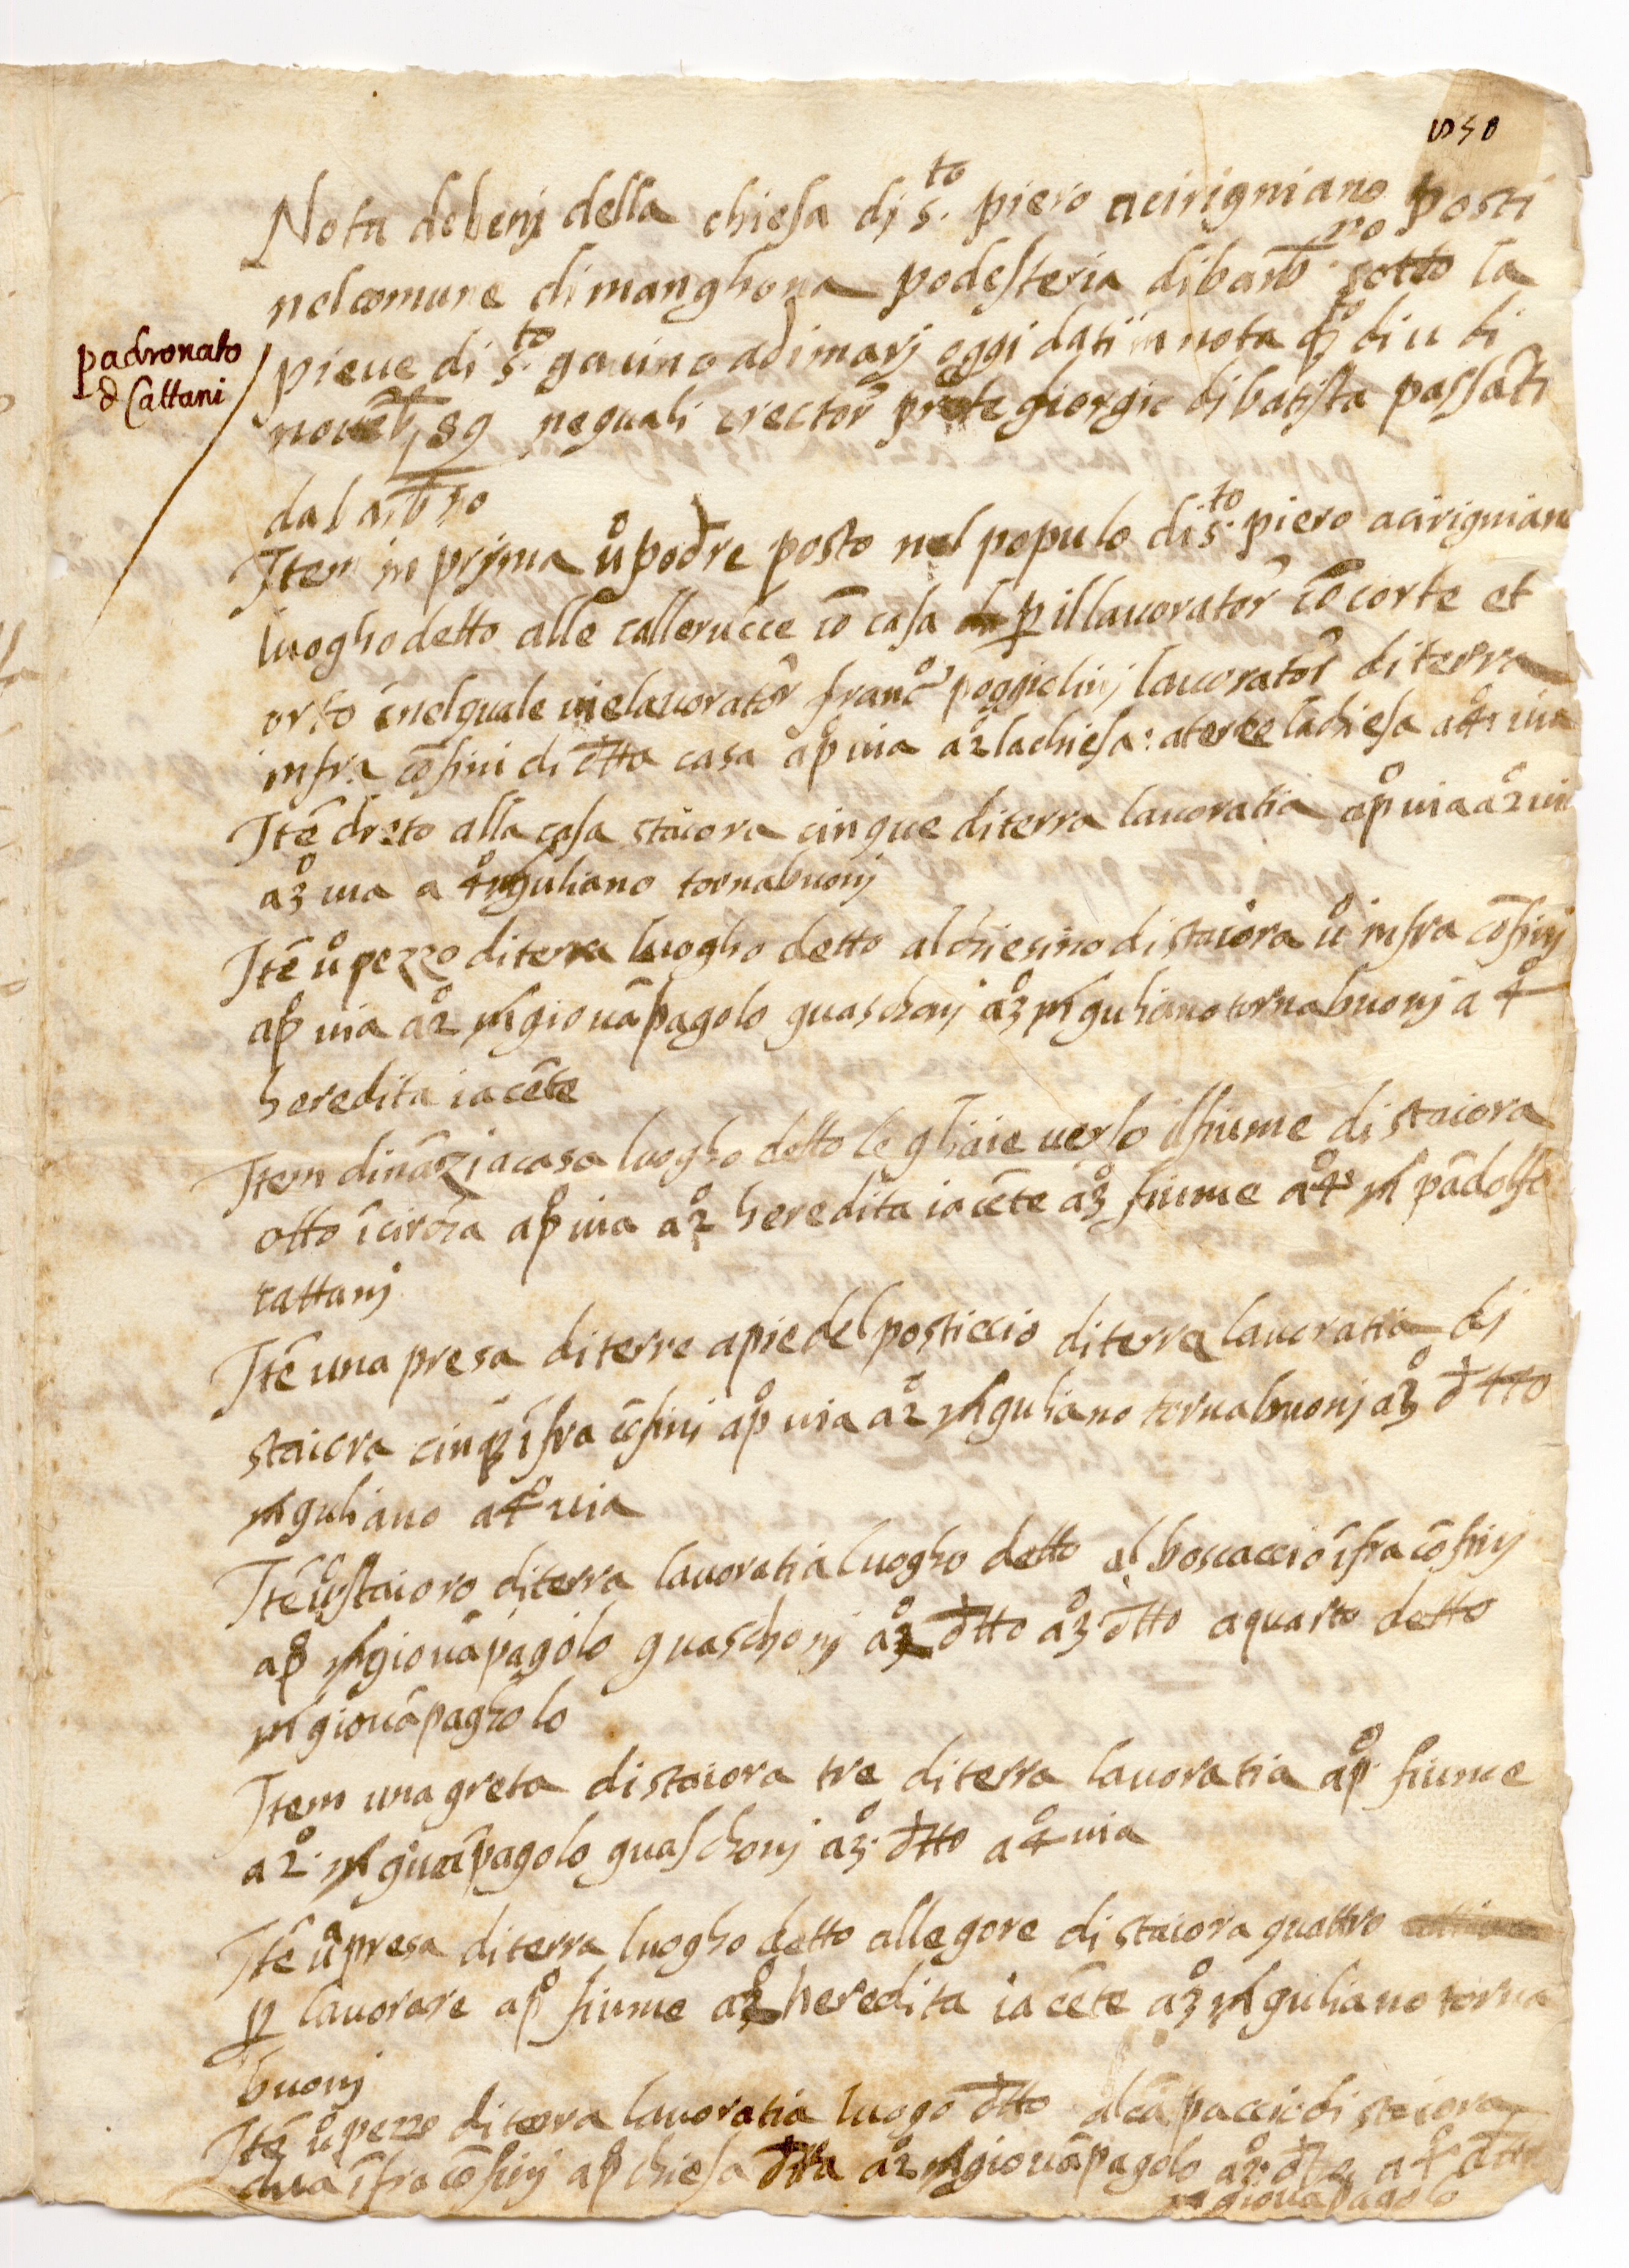 Nota de benj della chiesa dj s.to piero a cirigniano posti
nel comune di manghona podesteria di barb.ro sotto la
pieue di s.to gauino adimarj oggi dati in nota q.o di 11 di
padronato
d Cattani
nouēb 89 ne quali e rector prēte giorgio di batista passati
da barb.ro
Item in prjma ů podre posto nel populo di s.to piero a cirignian
luogho detto alle callerucce cō casa p il lauorator cō corte et
orto nel quale u'e lauorator franc.o poggiolinj lauorator di terra
infra cōfini di dtta casa a pº uia a 2º la chiesa: a terze la chiesa a 4º uia
Itē dreto alla casa staiora cinque di terra lauoratia a pº uia a 2º uia
a 3º uia a 4º m guliano tornabuonj
Itē ů pezzo di terra luogho detto al chiesino di staiora ů infra cōfinj
a pº uia a 2º m giouāpagolo guaschonj a 3º m guliano tornabuonj a 4º
heredita iacēte
Item dināzi a casa luogho detto le ghiaie uerso il fiume di staiora
otto ī circha a pº uia a 2º heredita iacēte a 3º fiume a 4º m pādolfo
cattanj
Itē una presa di terre a pie del posticcio di terra lauoratia dj
staiora cinq; īfra cōfinj a pº uia a 2º m guliano tornabuonj a 3º dtto
m guliano a 4º uia
Itē ů staioro di terra lauoratia luogho detto al boscaccio īfra cōfinj
a pº m giouāpagolo guaschonj a 2º dtto a 3º dtto a quarto detto
m giouāpagholo
Item una greta di staiora tre di terra lauoratia a pº fiume
a 2º m giuāpagolo guaschonj a 3º dtto a 4º uia
Itē ůa presa di terra luogho detto alle gore di staiora quattro
p lauorare a pº fiume a 2º heredita iacēte a 3º m guliano torna
buonj
Itē ů pezzo di terra lauoratia luogo dtto al cāpaccio di staiora
dua īfra cōfinj a pº chiesa dtta a 2º m giouāpagolo a 3º dtto a 4º dtto
m giouāpagolo